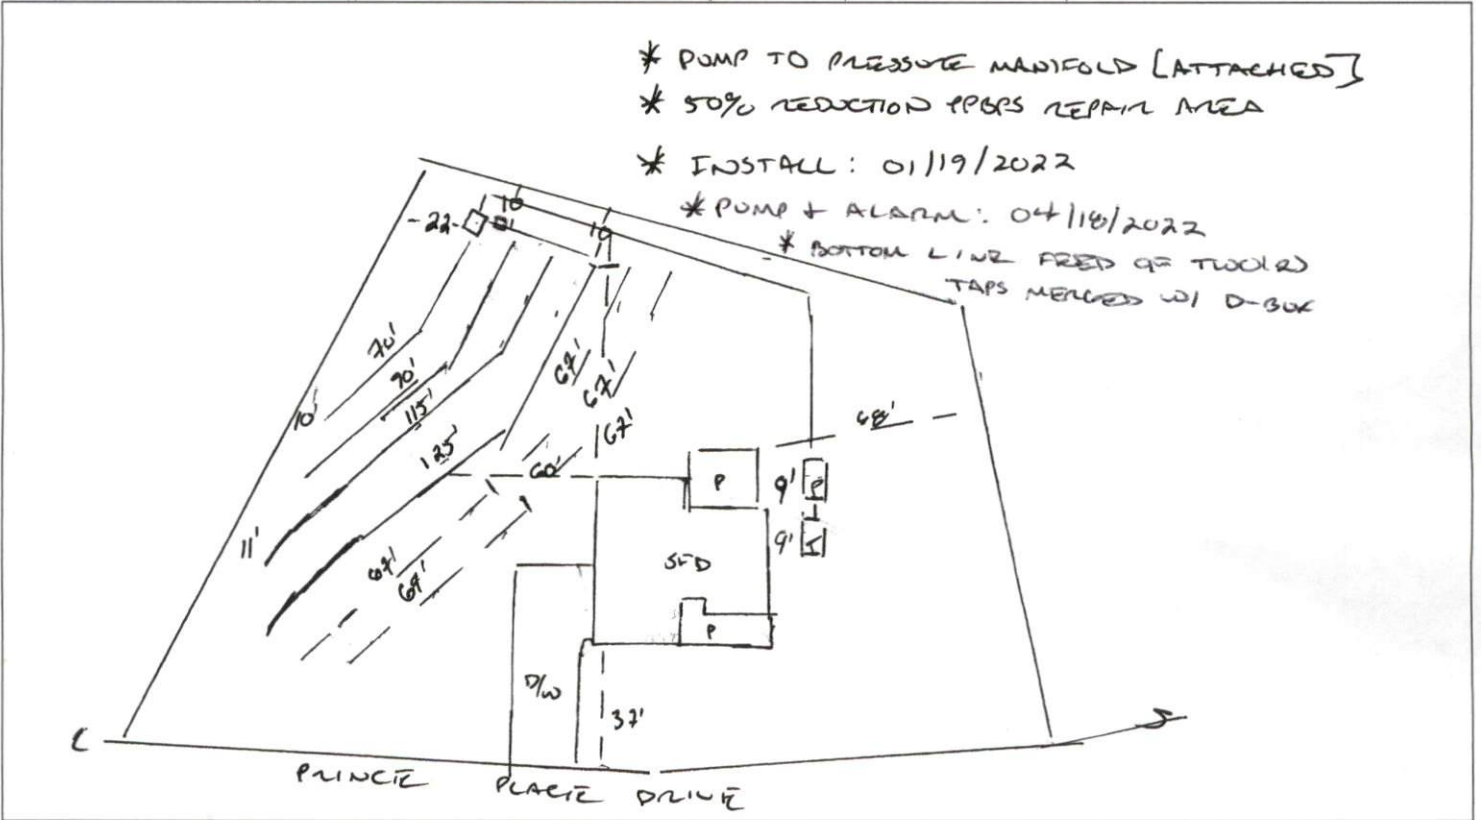 * PUMP TO PRESSURE MANIFOLD [ATTACHED]
* 50% REDUCTION PPBPS REPAIR AREA
* INSTALL: 01/19/2022
* PUMP & ALARM: 04/18/2022
* BOTTOM LINE FEED OF TWO(2)
TAPS MERGED W/ D-BOX
10
-22-
10
70'
90'
10'
115'
67'
67'
67'
68'
125'
60'
P
9'
P
11'
9'
T
SFD
67'
67'
P
D/W
37'
PRINCE PLACE DRIVE